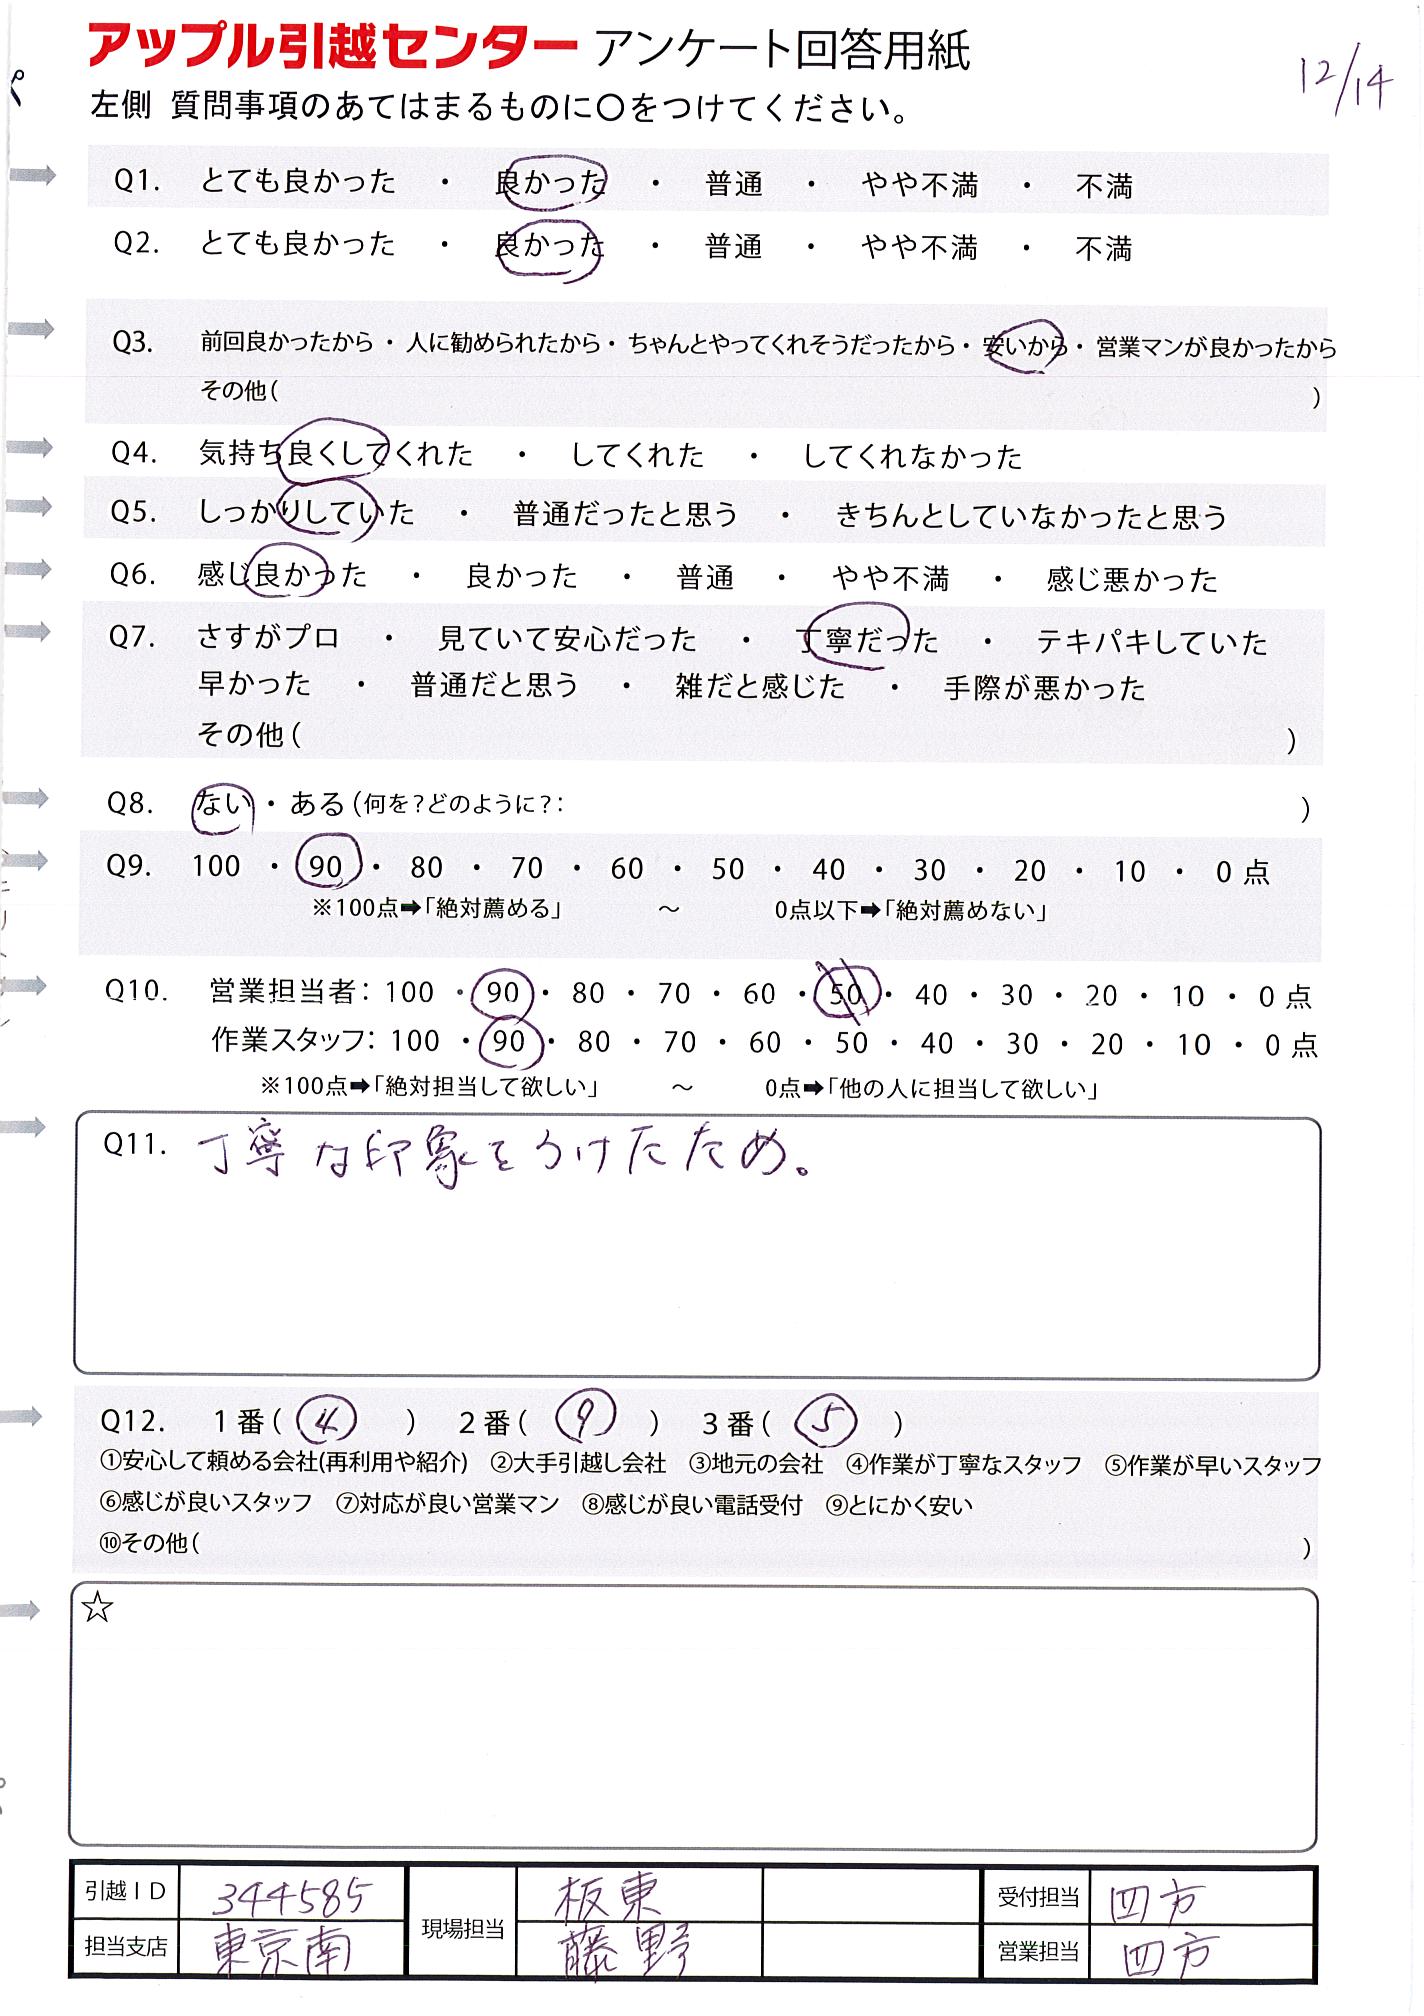 アップル引越センター アンケート回答用紙
12/14
左側 質問事項のあてはまるものに○をつけてください。
Q1. とても良かった ・ 良かった ・ 普通 ・ やや不満 ・ 不満
Q2. とても良かった ・ 良かった ・ 普通 ・ やや不満 ・ 不満
Q3. 前回良かったから・人に勧められたから・ちゃんとやってくれそうだったから・安いから・営業マンが良かったから
その他( )
Q4. 気持ち良くしてくれた ・ してくれた ・ してくれなかった
Q5. しっかりしていた ・ 普通だったと思う ・ きちんとしていなかったと思う
Q6. 感じ良かった ・ 良かった ・ 普通 ・ やや不満 ・ 感じ悪かった
Q7. さすがプロ ・ 見ていて安心だった ・ 丁寧だった ・ テキパキしていた
早かった ・ 普通だと思う ・ 雑だと感じた ・ 手際が悪かった
その他( )
Q8. ない・ある(何を?どのように?: )
Q9. 100 ・ 90 ・ 80 ・ 70 ・ 60 ・ 50 ・ 40 ・ 30 ・ 20 ・ 10 ・ 0点
※100点➡「絶対薦める」 ～ 0点以下➡「絶対薦めない」
Q10. 営業担当者: 100 ・ 90 ・ 80 ・ 70 ・ 60 ・ 50 ・ 40 ・ 30 ・ 20 ・ 10 ・ 0点
作業スタッフ: 100 ・ 90 ・ 80 ・ 70 ・ 60 ・ 50 ・ 40 ・ 30 ・ 20 ・ 10 ・ 0点
※100点➡「絶対担当して欲しい」 ～ 0点➡「他の人に担当して欲しい」
Q11. 丁寧な印象をうけたため。
Q12. 1番( 4 ) 2番( 9 ) 3番( 5 )
①安心して頼める会社(再利用や紹介) ②大手引越し会社 ③地元の会社 ④作業が丁寧なスタッフ ⑤作業が早いスタッフ
⑥感じが良いスタッフ ⑦対応が良い営業マン ⑧感じが良い電話受付 ⑨とにかく安い
⑩その他( )
☆
引越ID 344585 現場担当 板東 受付担当 四方
担当支店 東京南 藤野 営業担当 四方